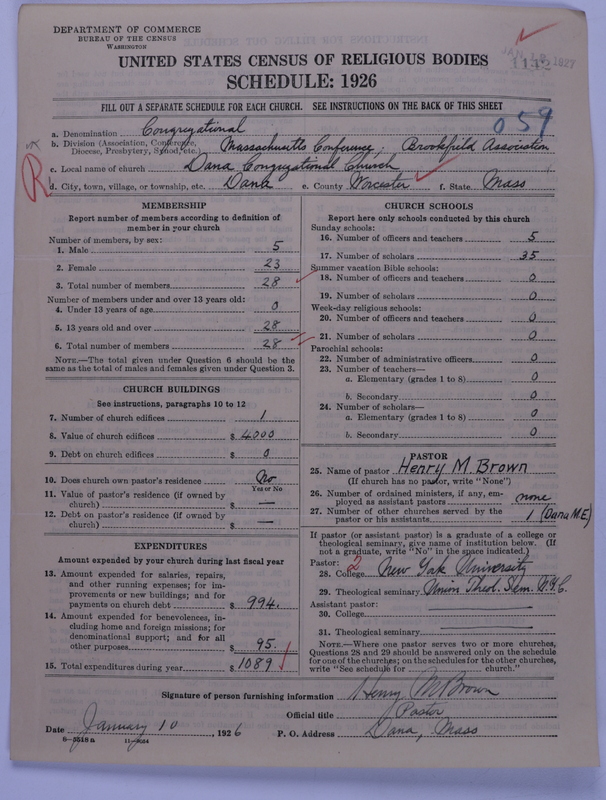 DEPARTMENT OF COMMERCE
BUREAU OF THE CENSUS
WASHINGTON
1927
UNITED STATES CENSUS OF RELIGIOUS BODIES
SCHEDULE: 1926
FILL OUT A SEPARATE SCHEDULE FOR EACH CHURCH. SEE INSTRUCTIONS ON THE BACK OF THIS SHEET
059
a. Denomination Congregational
b. Division (Association, Conference, Diocese, Presbytery, Synod, etc.) Massachusetts Conference. Brookfield Association
c. Local name of church Dana Congregational Church
R
d. City, town, village, or township, etc. Dana e. County Worcester f. State Mass
MEMBERSHIP
Report number of members according to definition of
member in your church
Number of members, by sex:
1. Male 5
2. Female 23
3. Total number of members 28
Number of members under and over 13 years old:
4. Under 13 years of age 0
5. 13 years old and over 28
6. Total number of members 28
NOTE.—The total given under Question 6 should be
same as the total of males and females given under Question 3.
CHURCH BUILDINGS
See instructions, paragraphs 10 to 12
7. Number of church edifices 1
8. Value of church edifices $ 4000
9. Debt on church edifices $ 0
10. Does church own pastor's residence No
Yes or No
11. Value of pastor's residence (if owned by
church) $ —
12. Debt on pastor's residence (if owned by
church) $ —
EXPENDITURES
Amount expended by your church during last fiscal year
13. Amount expended for salaries, repairs,
and other running expenses; for im-
provements or new buildings; and for
payments on church debt $ 994.
14. Amount expended for benevolences, in-
cluding home and foreign missions; for
denominational support; and for all
other purposes $ 95.
15. Total expenditures during year $ 1089
CHURCH SCHOOLS
Report here only schools conducted by this church
Sunday schools:
16. Number of officers and teachers 5
17. Number of scholars 35
Summer vacation Bible schools:
18. Number of officers and teachers 0
19. Number of scholars 0
Week-day religious schools:
20. Number of officers and teachers 0
21. Number of scholars 0
Parochial schools:
22. Number of administrative officers 0
23. Number of teachers—
a. Elementary (grades 1 to 8) 0
b. Secondary 0
24. Number of scholars—
a. Elementary (grades 1 to 8) 0
b. Secondary 0
PASTOR
25. Name of pastor Henry M. Brown
(If church has no pastor, write "None")
26. Number of ordained ministers, if any, em-
ployed as assistant pastors none
27. Number of other churches served by the
pastor or his assistants 1 (Dana M.E.)
If pastor (or assistant pastor) is a graduate of a college or
theological seminary, give name of institution below. (If
not a graduate, write "No" in the space indicated.)
Pastor: 2
28. College New York University
29. Theological seminary Union Theol. Sem. N.Y.C.
Assistant pastor:
30. College
31. Theological seminary
NOTE.—Where one pastor serves two or more churches,
Questions 28 and 29 should be answered only on the schedule
for one of the churches; on the schedules for the other churches,
write "See schedule for church."
Signature of person furnishing information Henry M Brown
Official title Pastor
Date January 10, 1926 P. O. Address Dana, Mass